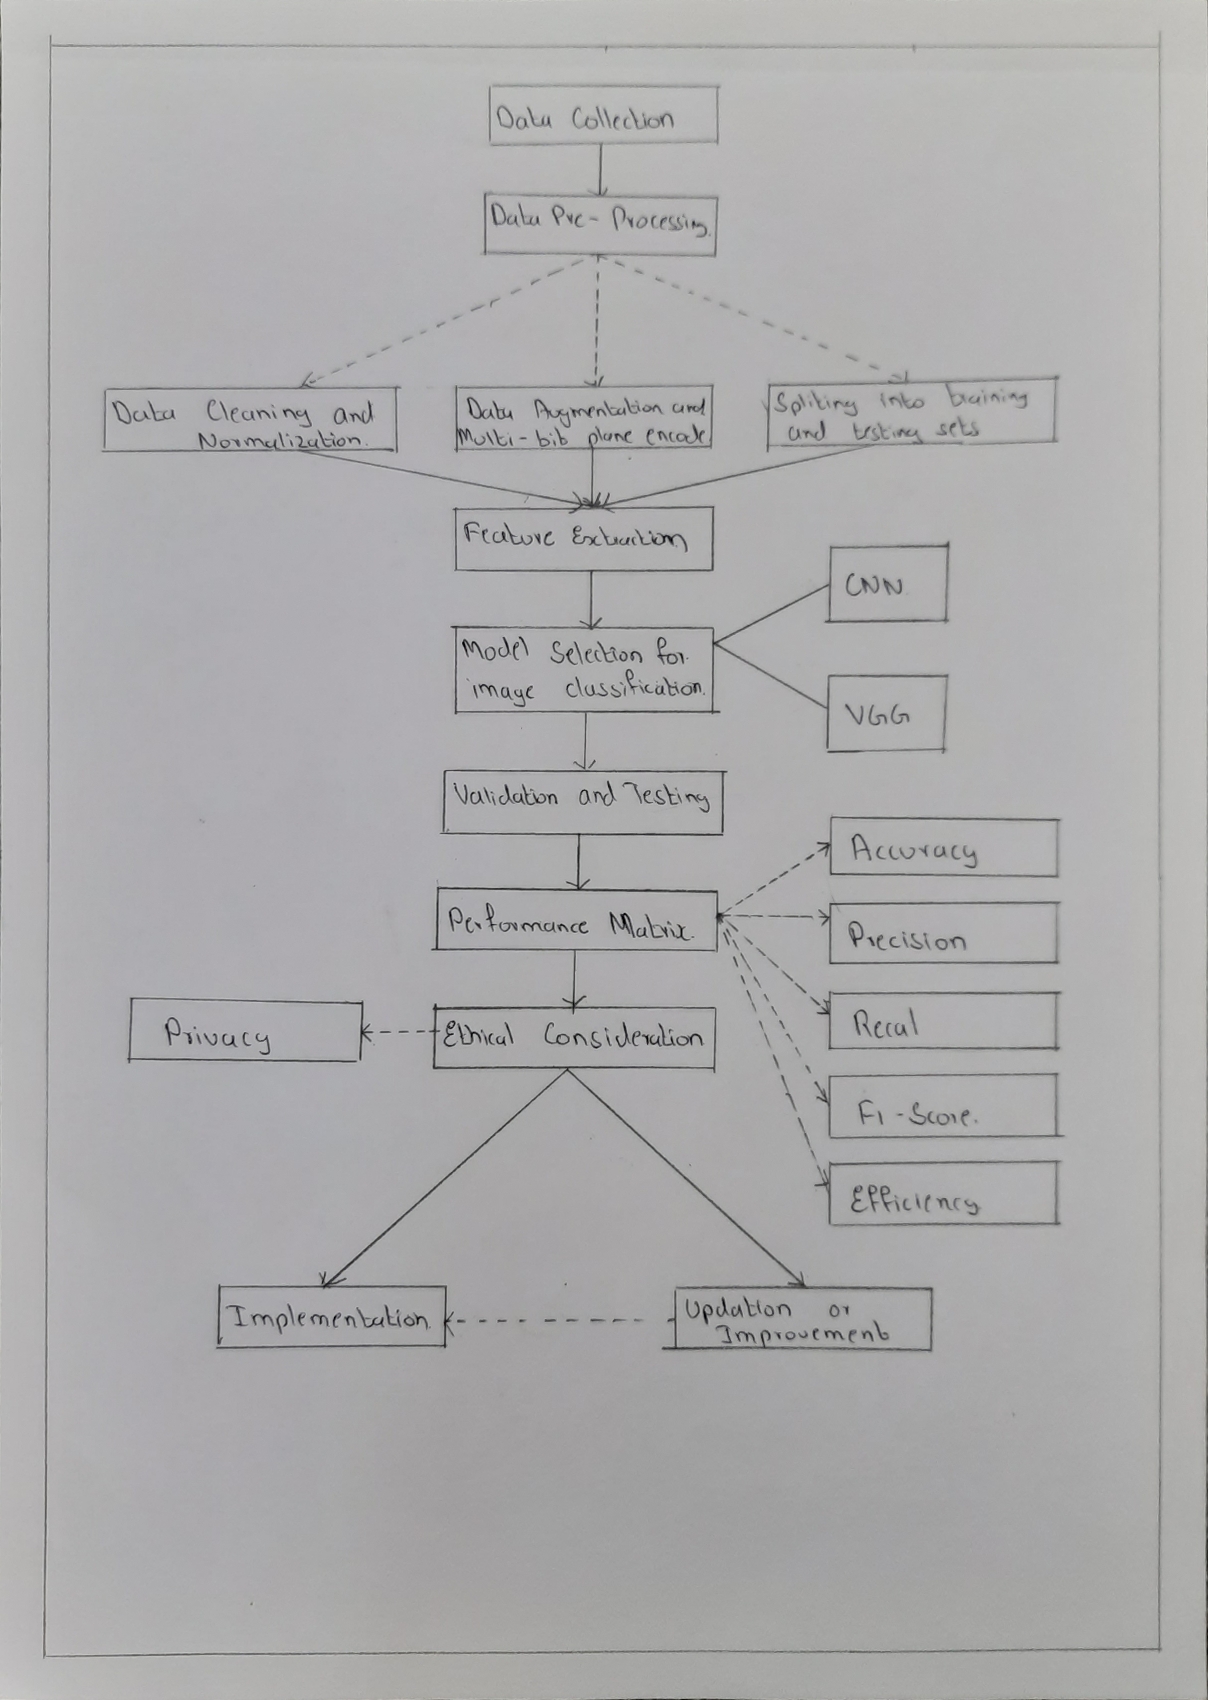 Data Collection
Data Pre-Processing.
Data Cleaning and
Normalization.
Data Augmentation and
Multi-bit plane encode
Spliting into training
and testing sets
Feature Extraction
CNN
Model Selection for
image classification.
VGG
Validation and Testing
Accuracy
Performance Matrix.
Precision
Recal
Privacy
Ethical Consideration
F1-Score.
Efficiency
Implementation
Updation or
Improvement